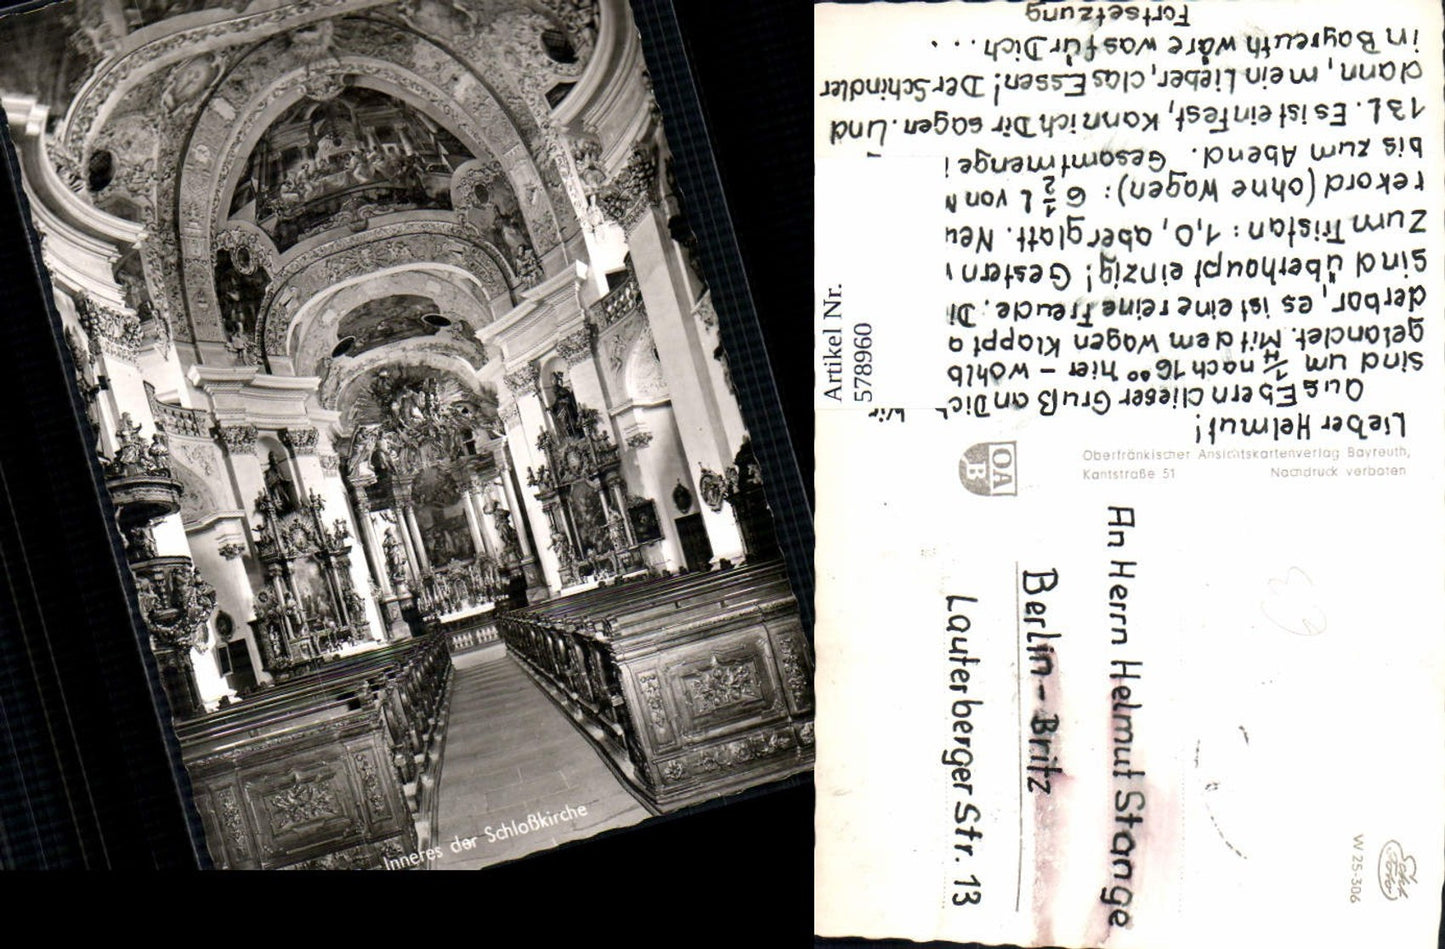 Inneres der Schloßkirche
Artikel Nr.
578960
Lieber Helmut!
aus Ebern dieser Gruß an Dich
Wir
sind um 1/4 nach 16⁰⁰ hier - wohlb
gelandet. Mit dem Wagen klappt
derbar, es ist eine reine Freude. Di
sind überhaupt einzig! Gestern
Zum Tristan: 1,0, aber glatt. Neu
rekord (ohne Wagen): 6 1/2 l von
bis zum Abend. Gesamtmenge
13 l. Es ist ein Fest, kann ich Dir sagen. Und
dann, mein Lieber, das Essen! Der Schindler
in Bayreuth wäre was für Dich ...
Fortsetzung
Oberfränkischer Ansichtskartenverlag Bayreuth,
Kantstraße 51 Nachdruck verboten
OA
B
An Herrn Helmut Stange
Berlin-Britz
Lauterberger Str. 13
W 25-306